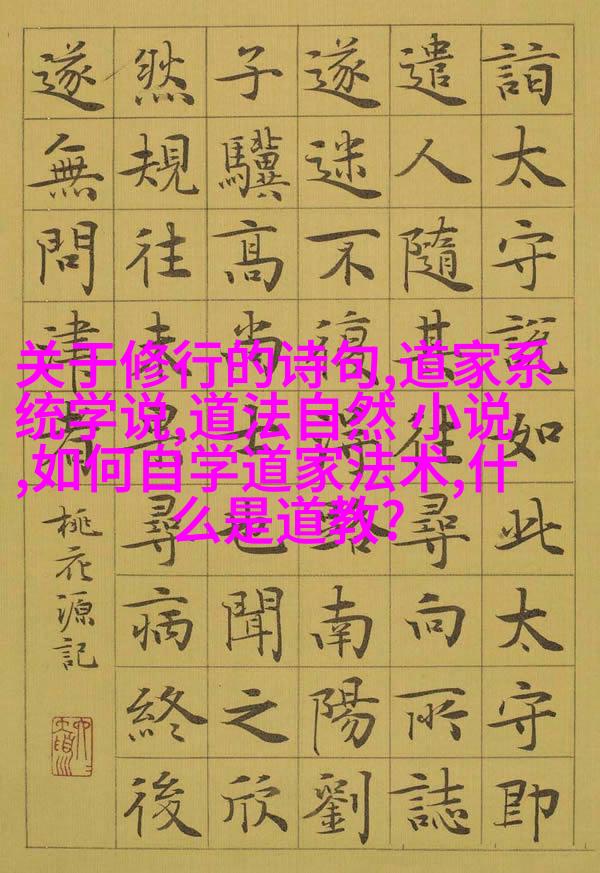 詣太守說如此太守即
遣人隨其往尋向所誌
遂迷不復得路南陽劉
子驥高尚士也聞之欣
然規往未果尋病終後
遂無問津者
桃花源記
关于修行的诗句,道家系
统学说,道法自然 小说
,如何自学道家法术,什
么是道教?